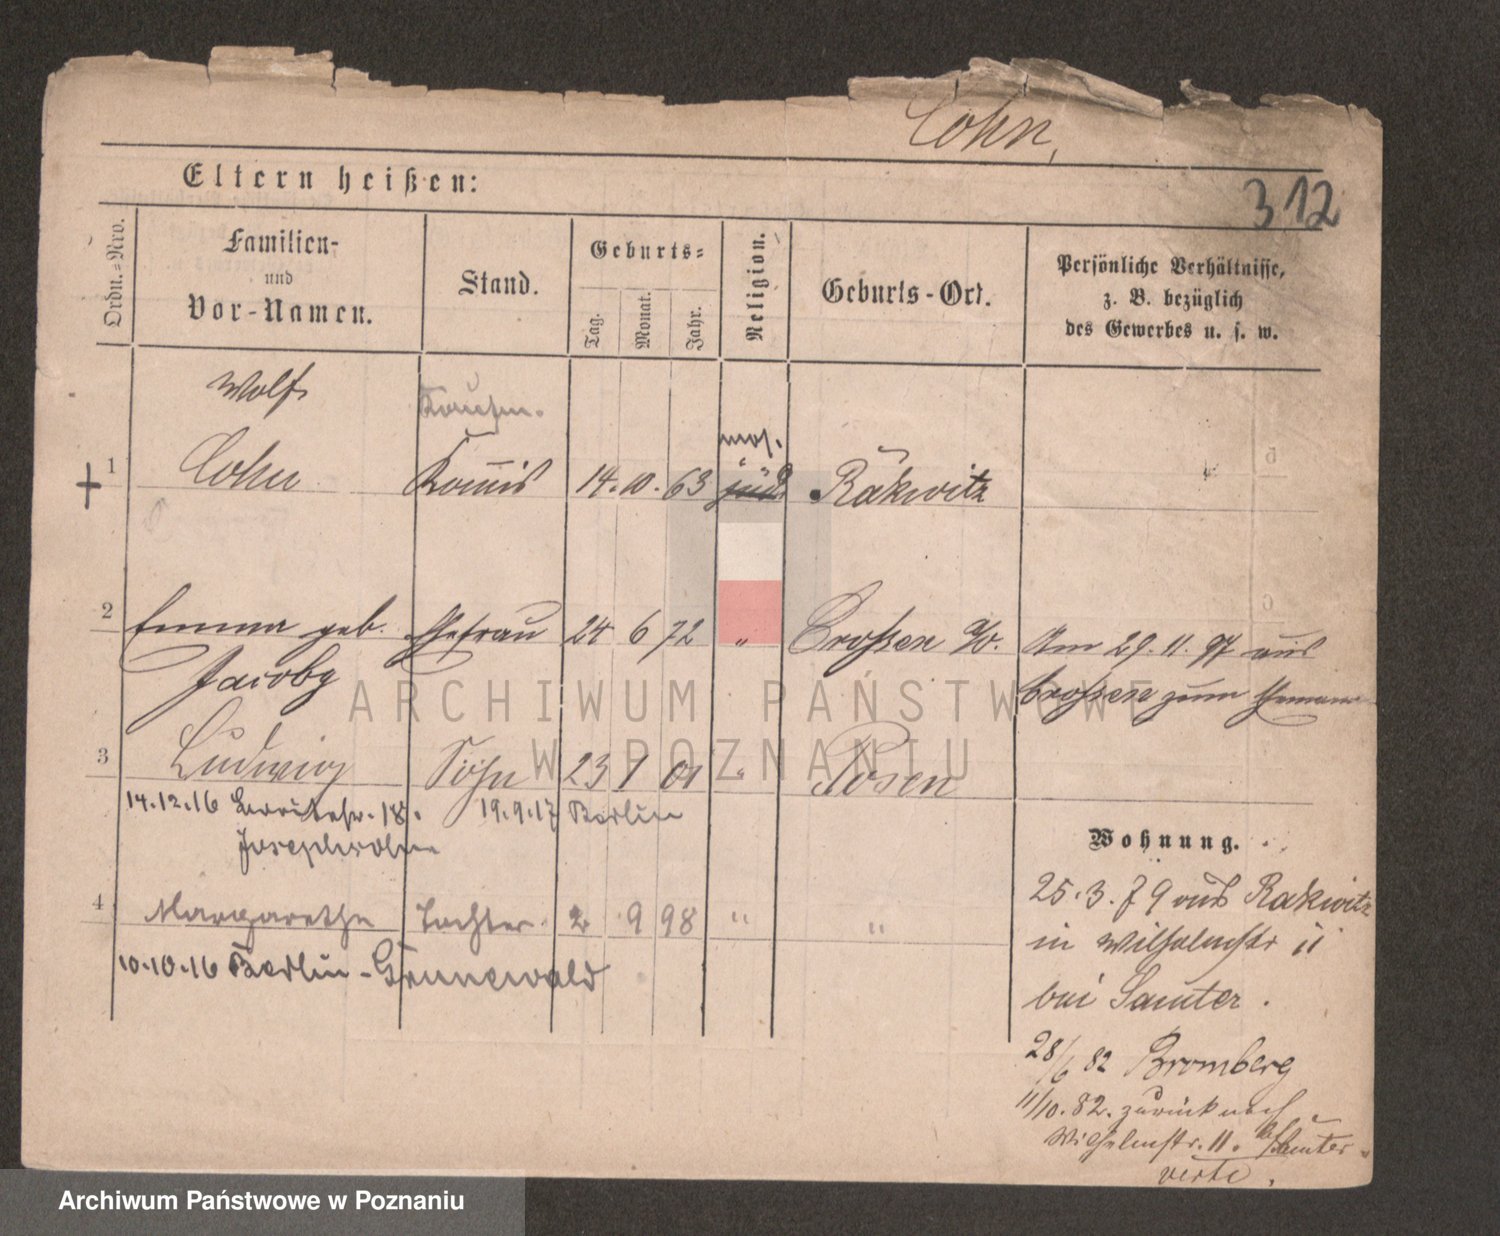 Cohn,
312
Eltern heißen:
Ordn.-Nro.
Familien-
und
Vor-Namen.
Stand.
Geburts-
Tag.
Monat.
Jahr.
Religion.
Geburts-Ort.
Persönliche Verhältnisse,
z. B. bezüglich
des Gewerbes u. s. w.
Wolf
Kaufm.
mos.
1 Cohn Kommis 14. 10. 63 jüd. Rakwitz
2 Emma geb. Ehefrau 24 6 72 " Crossen a/O. Am 29. 11. 97 aus
Jacoby Crossen zum Ehemann
3 Ludwig Sohn 23 1 01 " Posen
14.12.16 18. 19.9.17 Berlin
Wohnung.
4 Margarethe Tochter 2 9 98 " "
10.10.16 Berlin-Grunewald
25.3.79 aus Rakwitz
in Wilhelmstr 11
bei Samter.
28/6 82 Bromberg
11/10.82. zurück nach
Wilhelmstr. 11. b/Samter
verte.
ARCHIWUM PAŃSTWOWE
W POZNANIU
Archiwum Państwowe w Poznaniu